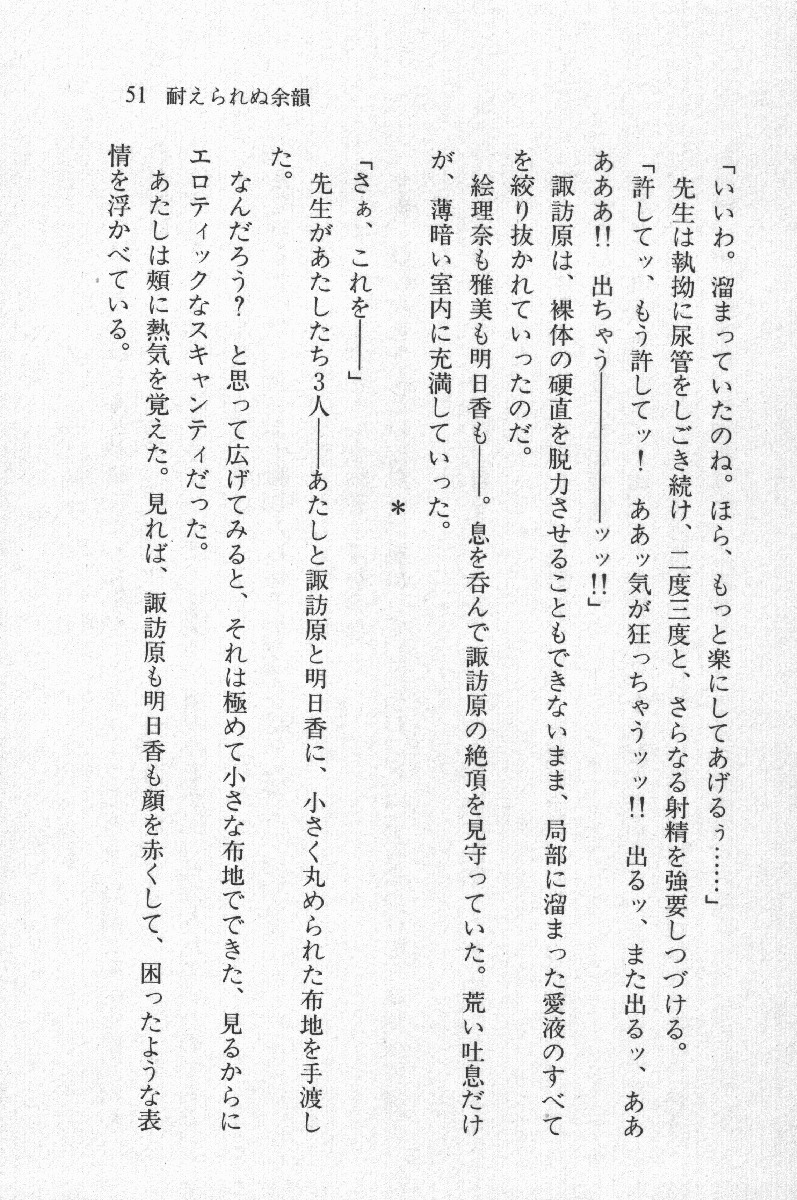 51 耐えられぬ余韻
「いいわ。溜まっていたのね。ほら、もっと楽にしてあげるぅ……」
先生は執拗に尿管をしごき続け、二度三度と、さらなる射精を強要しつづける。
「許してッ、もう許してッ！　ああッ気が狂っちゃうッッ!!　出るッ、また出るッ、ああ
あああ!!　出ちゃう――――――ッッ!!」
諏訪原は、裸体の硬直を脱力させることもできないまま、局部に溜まった愛液のすべて
を絞り抜かれていったのだ。
絵理奈も雅美も明日香も――。息を呑んで諏訪原の絶頂を見守っていた。荒い吐息だけ
が、薄暗い室内に充満していった。
＊
「さぁ、これを――」
先生があたしたち3人――あたしと諏訪原と明日香に、小さく丸められた布地を手渡し
た。
なんだろう？　と思って広げてみると、それは極めて小さな布地でできた、見るからに
エロティックなスキャンティだった。
あたしは頰に熱気を覚えた。見れば、諏訪原も明日香も顔を赤くして、困ったような表
情を浮かべている。